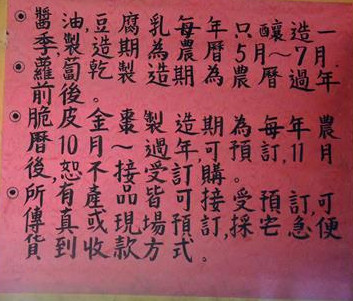 醬油豆腐乳每年只釀造一
季,製造期為農曆5月~7月.
蘿蔔乾製造期為農曆過年
前後。
脆皮金棗製造期為每年農
曆10月~過年,可預訂,11月
後,恕不接受訂購。
所有產品皆可接受預訂,可
傳真或現場預訂,採宅急便
貨到收款方式。